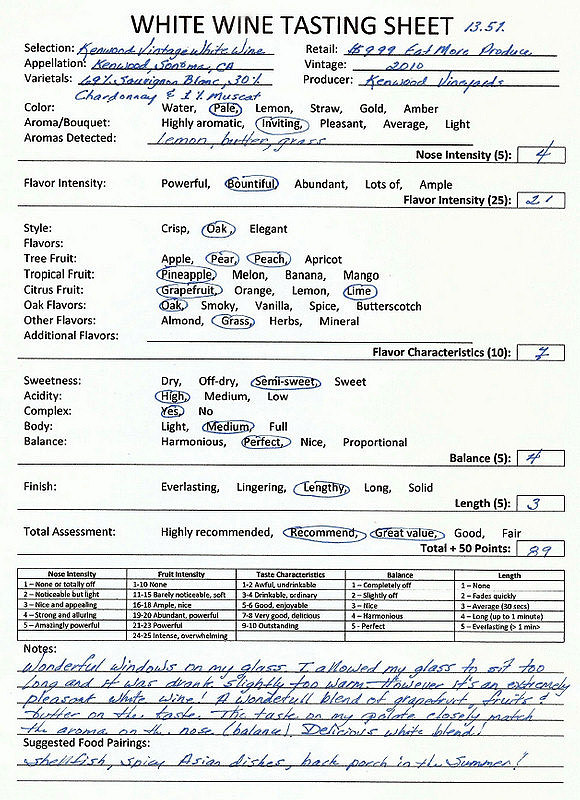 WHITE WINE TASTING SHEET 13.5%
Selection: Kenwood Vintage White Wine Retail: $9.99 Eat More Produce
Appellation: Kenwood, Sonoma, CA Vintage: 2010
Varietals: 69% Sauvignon Blanc, 30% Producer: Kenwood Vineyards
Chardonnay & 1% Muscat
Color: Water, Pale, Lemon, Straw, Gold, Amber
Aroma/Bouquet: Highly aromatic, Inviting, Pleasant, Average, Light
Aromas Detected: lemon, butter, grass
Nose Intensity (5): 4
Flavor Intensity: Powerful, Bountiful, Abundant, Lots of, Ample
Flavor Intensity (25): 21
Style: Crisp, Oak, Elegant
Flavors:
Tree Fruit: Apple, Pear, Peach, Apricot
Tropical Fruit: Pineapple, Melon, Banana, Mango
Citrus Fruit: Grapefruit, Orange, Lemon, Lime
Oak Flavors: Oak, Smoky, Vanilla, Spice, Butterscotch
Other Flavors: Almond, Grass, Herbs, Mineral
Additional Flavors:
Flavor Characteristics (10): 7
Sweetness: Dry, Off-dry, Semi-sweet, Sweet
Acidity: High, Medium, Low
Complex: Yes, No
Body: Light, Medium, Full
Balance: Harmonious, Perfect, Nice, Proportional
Balance (5): 4
Finish: Everlasting, Lingering, Lengthy, Long, Solid
Length (5): 3
Total Assessment: Highly recommended, Recommend, Great value, Good, Fair
Total + 50 Points: 89
Nose Intensity Fruit Intensity Taste Characteristics Balance Length
1 – None or totally off 1-10 None 1-2 Awful, undrinkable 1 – Completely off 1 – None
2 – Noticeable but light 11-15 Barely noticeable, soft 3-4 Drinkable, ordinary 2 – Slightly off 2 – Fades quickly
3 – Nice and appealing 16-18 Ample, nice 5-6 Good, enjoyable 3 – Nice 3 – Average (30 secs)
4 – Strong and alluring 19-20 Abundant, powerful 7-8 Very good, delicious 4 – Harmonious 4 – Long (up to 1 minute)
5 – Amazingly powerful 21-23 Powerful 9-10 Outstanding 5 – Perfect 5 – Everlasting (> 1 min)
24-25 Intense, overwhelming
Notes:
Wonderful windows on my glass. I allowed my glass to sit too
long and it was drank slightly too warm. However it's an extremely
pleasant white wine! A wonderfull blend of grapefruit, fruits &
butter on the taste. The taste on my palate closely match
the aroma on the nose (balance). Delicious white blend!
Suggested Food Pairings:
Shellfish, spicy Asian dishes, back porch in the Summer!